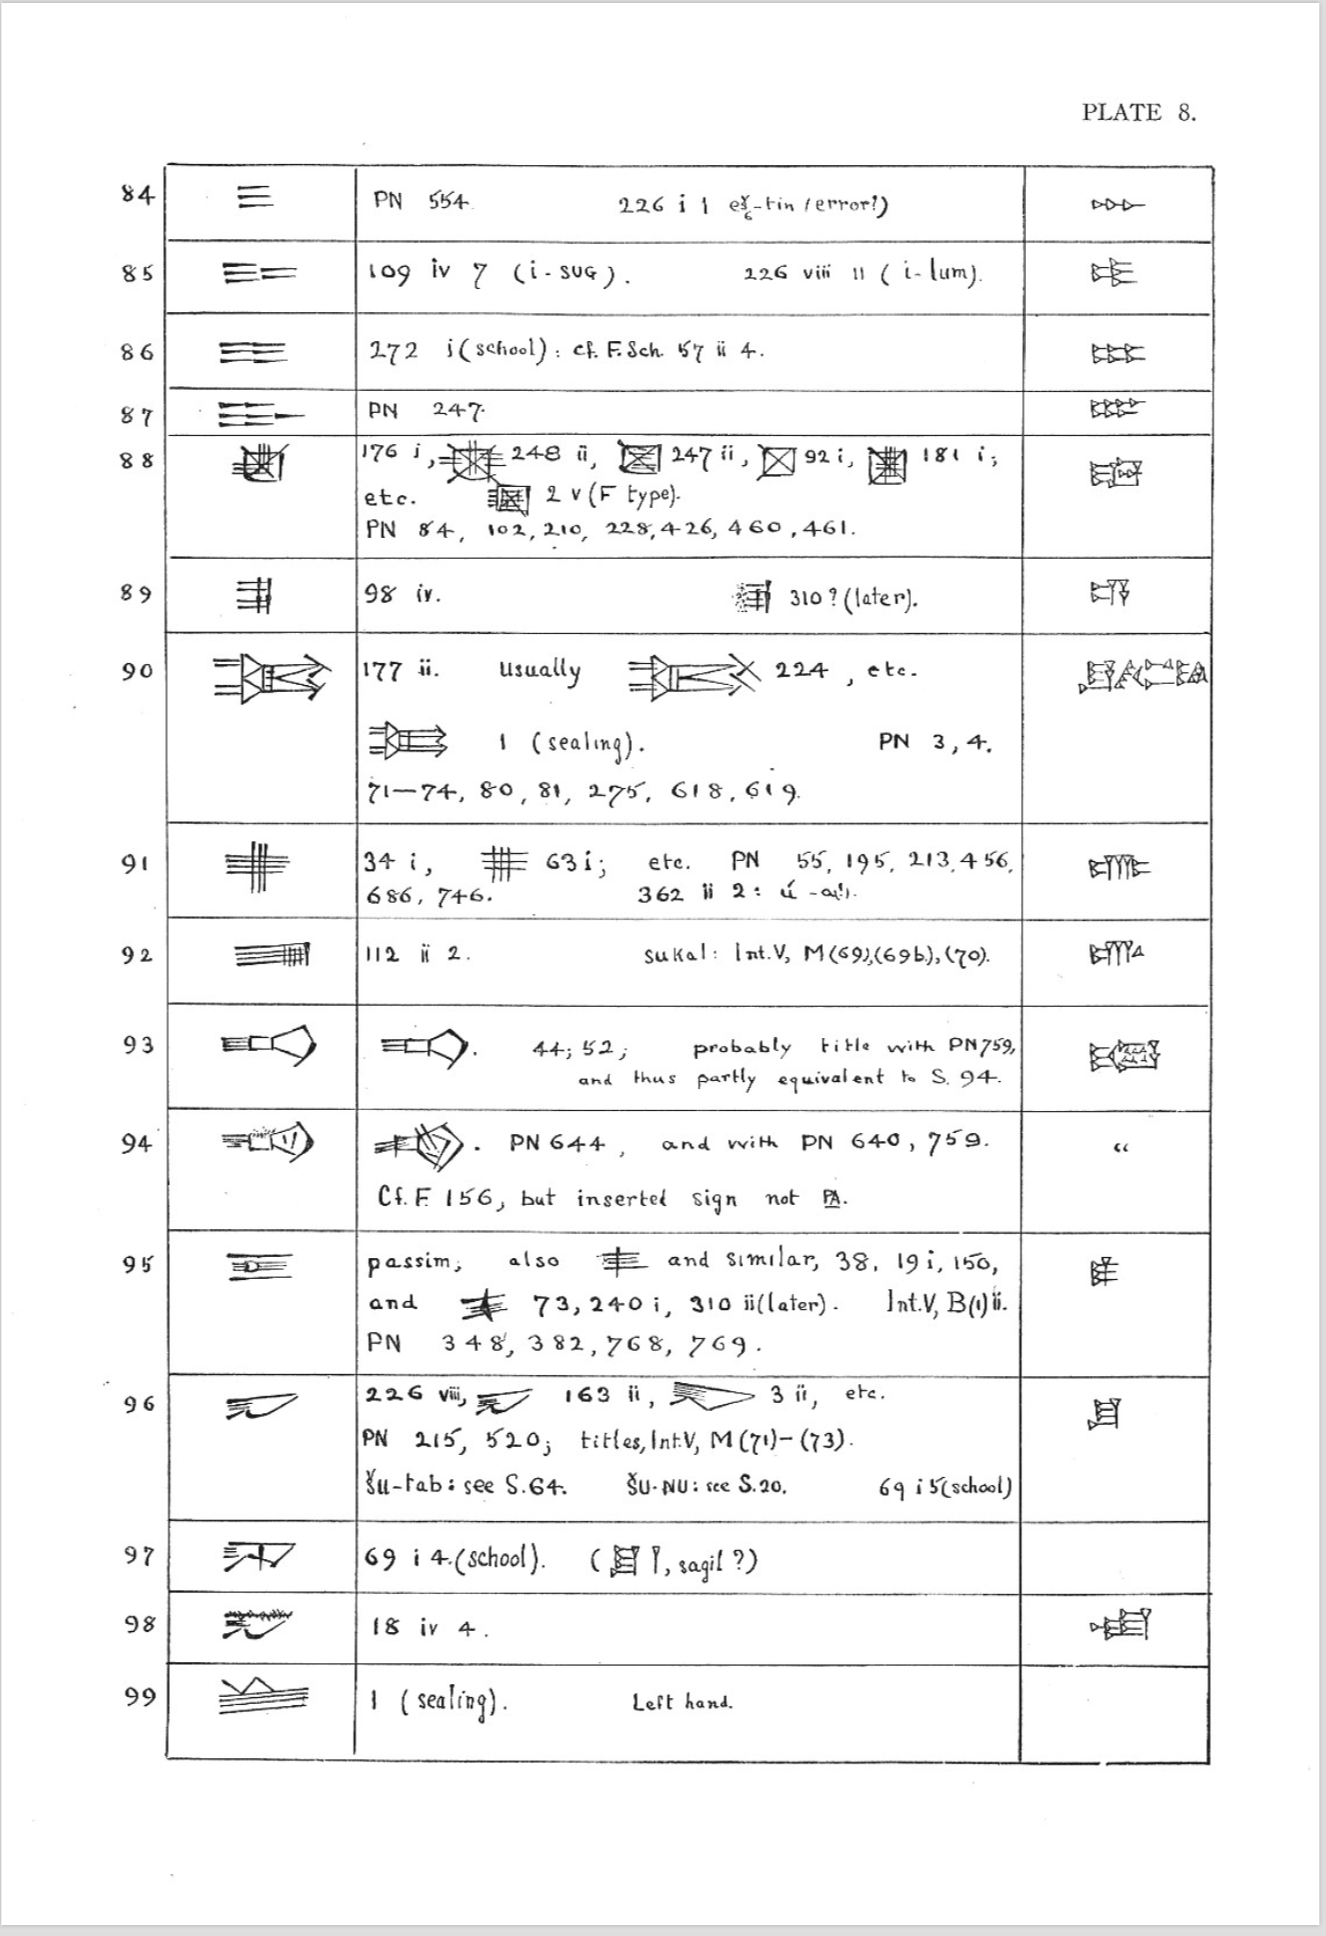 PLATE 8.
84 PN 554. 226 i 1 (error!)
85 109 iv 7 (i-SUG). 226 viii 11 (i-lum).
86 272 i (school): cf. F. Sch. 57 ii 4.
87 PN 247.
88 176 i, 248 ii, 247 ii, 92 i, 181 i;
etc. 2 v (F type).
PN 84, 102, 210, 228, 426, 460, 461.
89 98 iv. 310? (later).
90 177 ii. usually 224, etc.
1 (sealing). PN 3, 4.
71—74, 80, 81, 275, 618, 619.
91 34 i, 63 i; etc. PN 55, 195, 213, 456,
686, 746. 362 ii 2:
92 112 ii 2. sukal: Int.V, M(69),(69b),(70).
93 44; 52; probably title with PN 759,
and thus partly equivalent to S. 94.
94 PN 644, and with PN 640, 759. “
Cf. F. 156, but inserted sign not PA.
95 passim; also and similar, 38, 19 i, 150,
and 73, 240 i, 310 ii (later). Int.V, B(1) ii.
PN 348, 382, 768, 769.
96 226 viii, 163 ii, 3 ii, etc.
PN 215, 520; titles, Int.V, M(71)-(73).
šu-tab: see S.64. ŠU-NU: see S.20. 69 i 5 (school)
97 69 i 4. (school). ( , sagil?)
98 18 iv 4.
99 1 (sealing). Left hand.